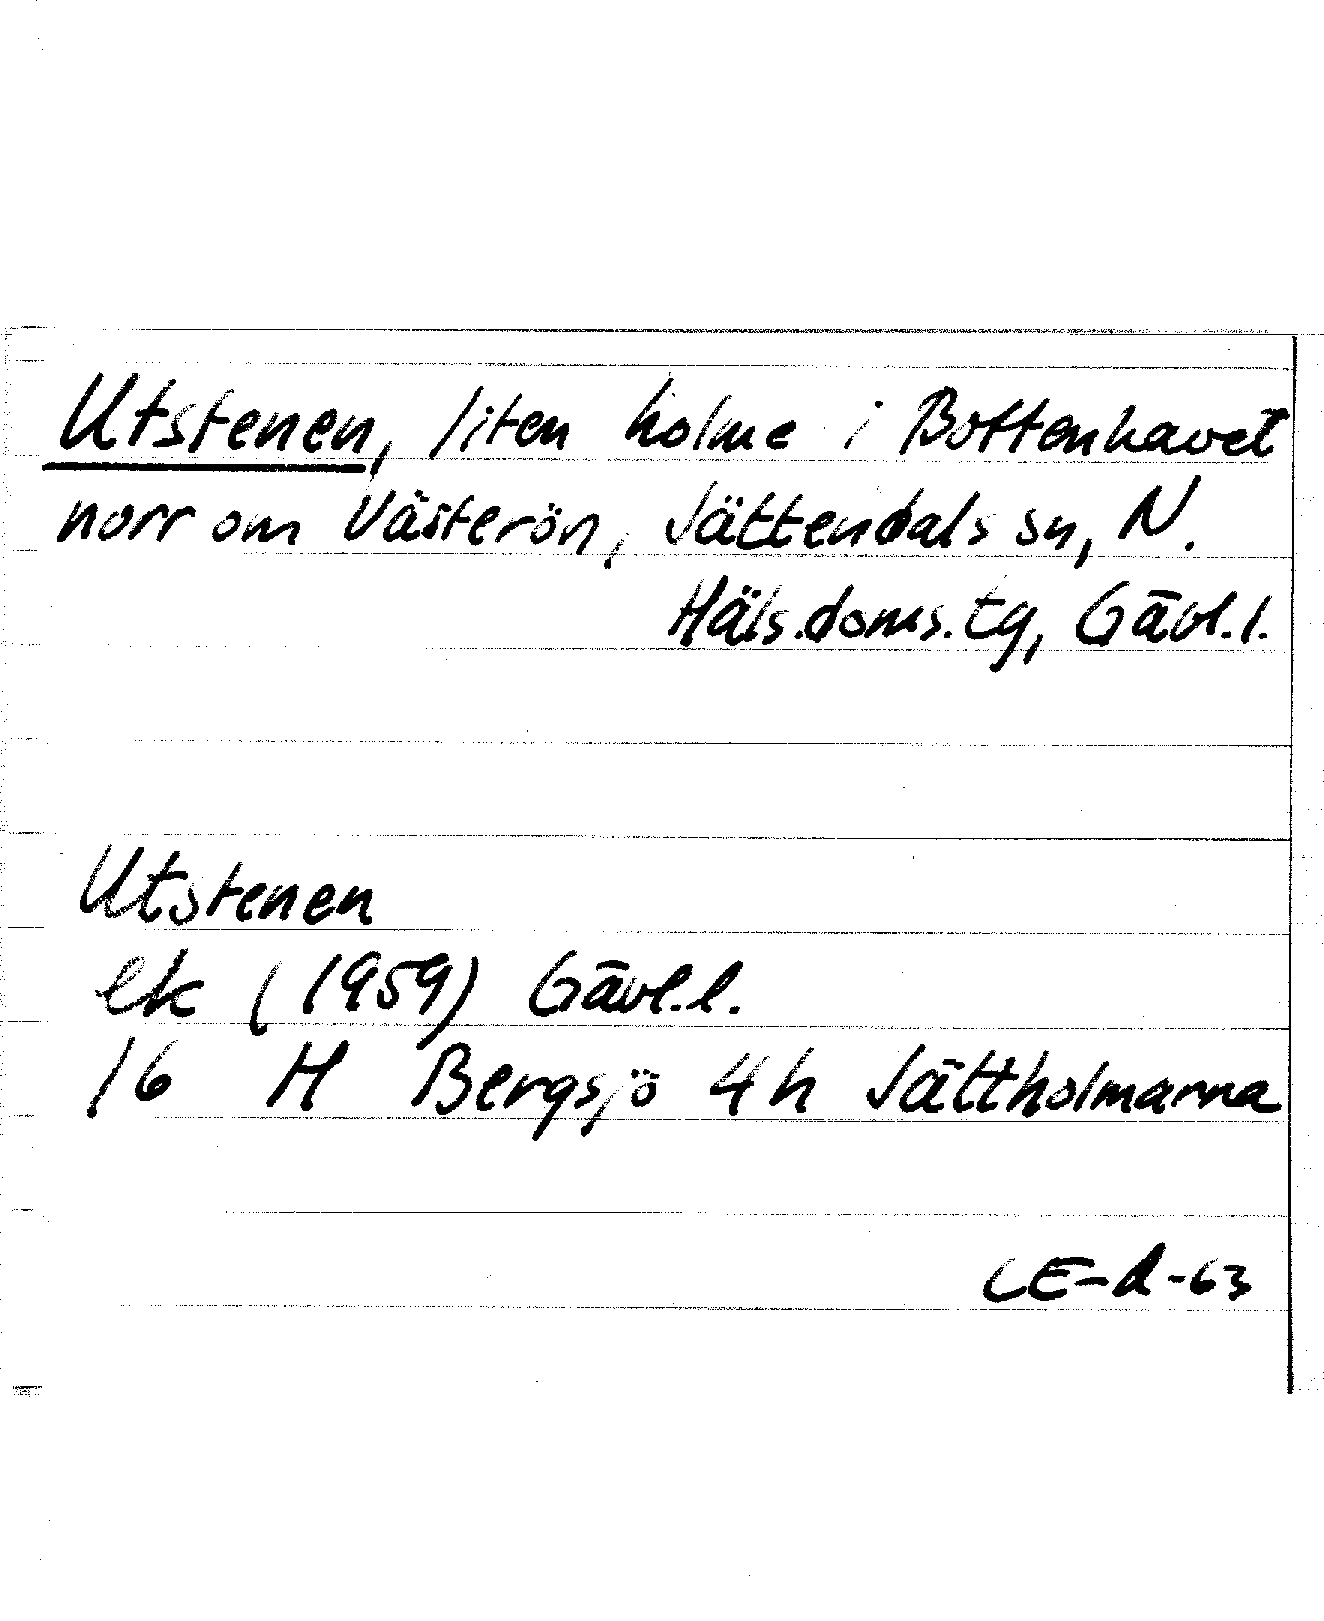 Utstenen, liten holme i Bottenhavet
norr om Västerön, Jättendals sn, N.
Häls.doms.tg, Gävl.l.
Utstenen
ek (1959) Gävl.l.
16 H Bergsjö 4h Jättholmarna
CE-d-63